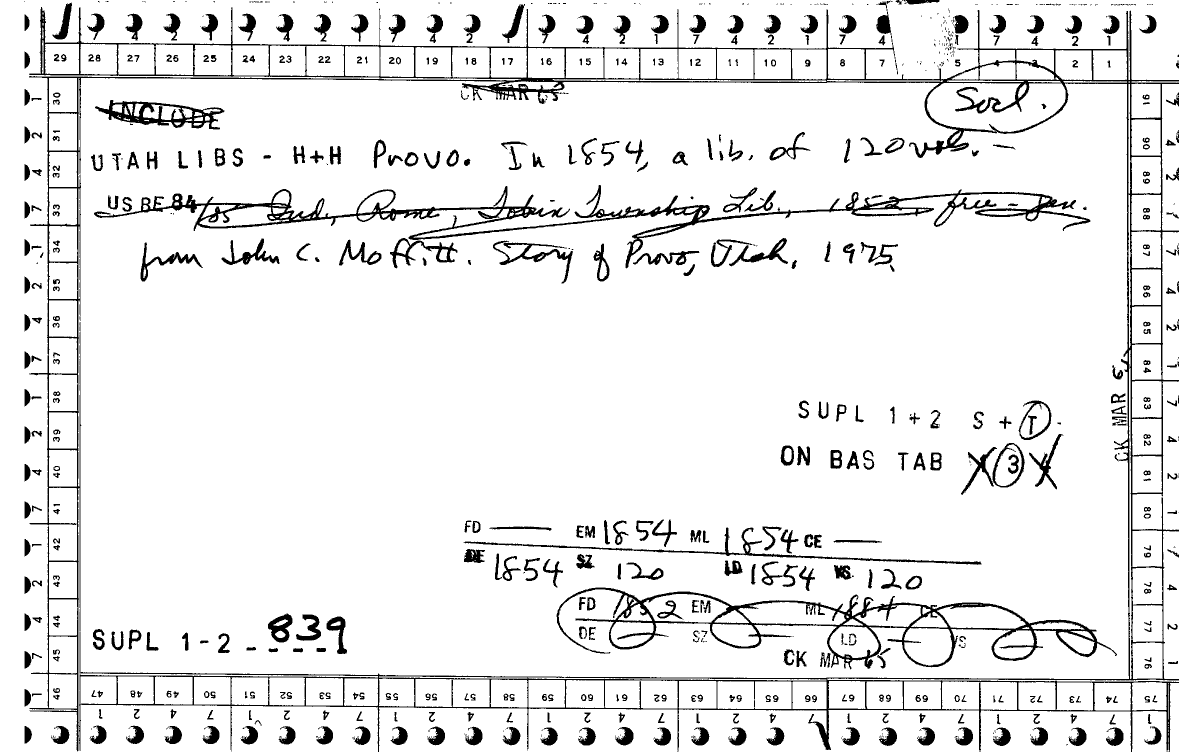 7 4 2 1 7 4 2 1 7 4 2 1 7 4 2 1 7 4 2 1 7 4 7 4 2 1
29 28 27 26 25 24 23 22 21 20 19 18 17 16 15 14 13 12 11 10 9 8 7 5 4 3 2 1
CK MAR 65
INCLUDE
Socl.
UTAH LIBS - H+H Provo. In 1854, a lib. of 120 vols. -
US BE 84/85 Ind., Rome, Tobin Township Lib., 1852, free-gen.
from John C. Moffitt. Story of Provo, Utah, 1975.
SUPL 1+2 S + T.
ON BAS TAB 3 4
CK MAR 65
FD — EM 1854 ML 1854 CE —
DE 1854 SZ 120 LD 1854 VS 120
FD 1852 EM — ML 1884 CE —
DE — SZ — LD — VS
CK MAR 65
SUPL 1-2 ----839
30 31 32 33 34 35 36 37 38 39 40 41 42 43 44 45 46
91 90 89 88 87 86 85 84 83 82 81 80 79 78 77 76 75
47 48 49 50 51 52 53 54 55 56 57 58 59 60 61 62 63 64 65 66 67 68 69 70 71 72 73 74
1 2 4 7 1 2 4 7 1 2 4 7 1 2 4 7 1 2 4 7 1 2 4 7 1 2 4 7